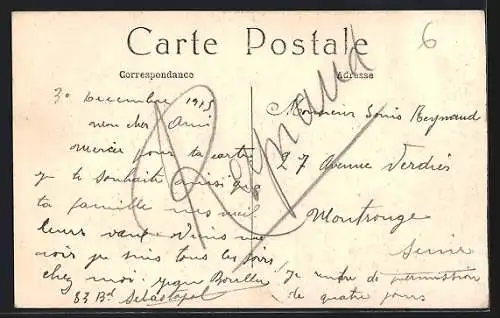 Carte Postale
6
Correspondance
Adresse
Reynaud
30 Decembre 1915
mon cher Ami
Mercie pour ta carte
je te souhaite ainsi que
ta famille mes meil
leurs vœux. Viens me
voir je suis tous les soirs
chez moi.
83 Bd Sebastopol
Monsieur Louis Reynaud
27 Avenue Verdier
Montrouge
Seine
Je rentre de permission
de quatre jours